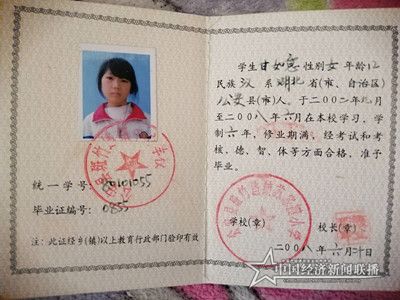 统一学号:80101055
毕业证编号:0855
注:此证经乡(镇)以上教育行政部门验印有效
学生甘如意性别女年龄12
民族汉系湖北省(市、自治区)
公安县(市)人。于二00二年九月
至二00八年六月在本校学习,学
制六年,修业期满,经考试和考
核,德、智、体等方面合格,准予
毕业。
学校(章) 校长(章)
二00八年六月二十日
中国经济新闻联播